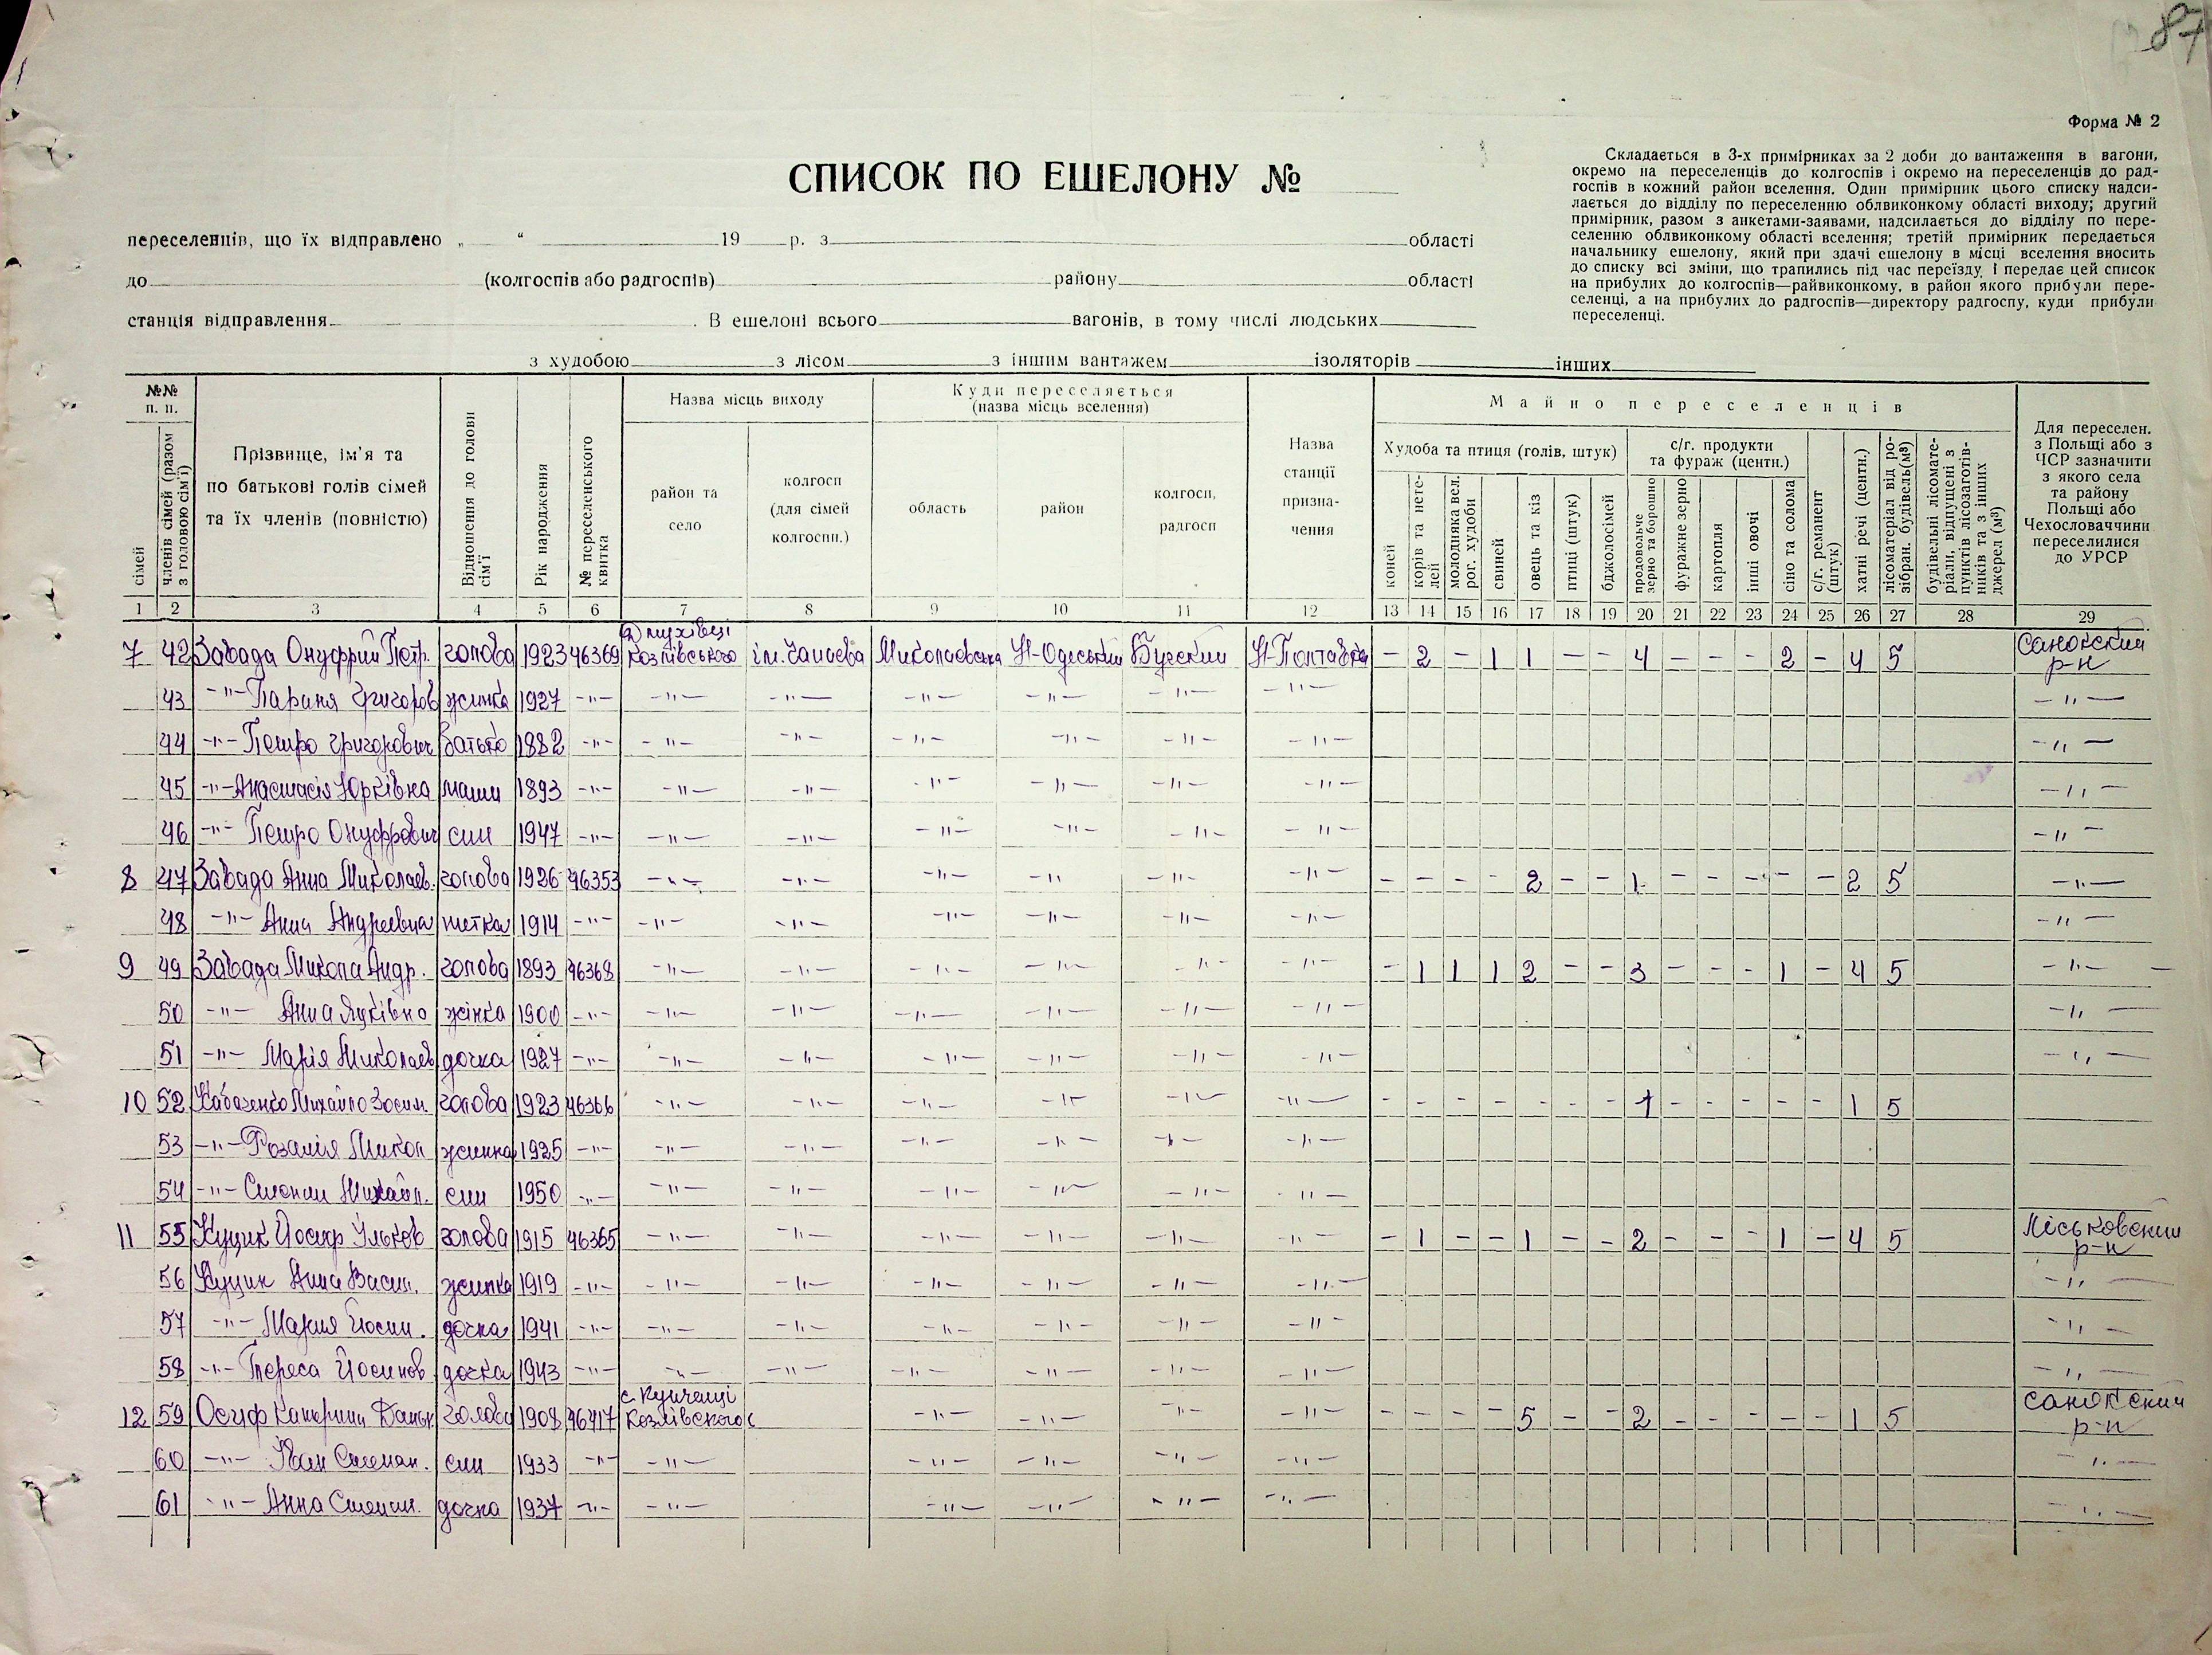 87
Форма № 2
СПИСОК ПО ЕШЕЛОНУ №
Складається в 3-х примірниках за 2 доби до вантаження в вагони,
окремо на переселенців до колгоспів і окремо на переселенців до рад-
госпів в кожний район вселення. Один примірник цього списку надси-
лається до відділу по переселенню облвиконкому області виходу; другий
примірник, разом з анкетами-заявами, надсилається до відділу по пере-
селенню облвиконкому області вселення; третій примірник передається
начальнику ешелону, який при здачі ешелону в місці вселення вносить
до списку всі зміни, що трапились під час переїзду і передає цей список
на прибулих до колгоспів—райвиконкому, в район якого прибули пере-
селенці, а на прибулих до радгоспів—директору радгоспу, куди прибули
переселенці.
переселенців, що їх відправлено „ “ 19 р. з області
до (колгоспів або радгоспів) району області
станція відправлення . В ешелоні всього вагонів, в тому числі людських
з худобою з лісом з іншим вантажем ізоляторів інших
№№ п. п.
сімей
членів сімей (разом з головою сім'ї)
Прізвище, ім'я та
по батькові голів сімей
та їх членів (повністю)
Відношення до голови сім'ї
Рік народження
№ переселенського квитка
Назва місць виходу
район та
село
колгосп
(для сімей
колгоспн.)
Куди переселяється
(назва місць вселення)
область
район
колгосп,
радгосп
Назва
станції
призна-
чення
Майно переселенців
Худоба та птиця (голів, штук)
коней
корів та нете-
лей
молодняка вел.
рог. худоби
свиней
овець та кіз
птиці (штук)
бджолосімей
с/г. продукти
та фураж (центн.)
продовольче
зерно та борошно
фуражне зерно
картопля
інші овочі
сіно та солома
с/г. реманент
(штук)
хатні речі (центн.)
лісоматеріал від ро-
зібран. будівель(м³)
будівельні лісомате-
ріали, відпущені з
пунктів лісозаготів-
ників та з інших
джерел (м³)
Для переселен.
з Польщі або з
ЧСР зазначити
з якого села
та району
Польщі або
Чехословаччини
переселилися
до УРСР
1 2 3 4 5 6 7 8 9 10 11 12 13 14 15 16 17 18 19 20 21 22 23 24 25 26 27 28 29
7 42 Завада Онуфрий Петр. голова 1923 46369 Козлівського ім. Чапаєва Миколаевська Н-Одеський Бугский Н-Полтавка – 2 – 1 1 – – 4 – – – 2 – 4 5 Санокский р-н
43 –"– Параня Григоров жинка 1927 –"– –"– –"– –"– –"– –"– –"– –"–
44 –"– Петро Григорович батько 1882 –"– –"– –"– –"– –"– –"– –"– –"–
45 –"– Анастасія Юрківна мати 1893 –"– –"– –"– –"– –"– –"– –"– –"–
46 –"– Петро Онуфрович син 1947 –"– –"– –"– –"– –"– –"– –"– –"–
8 47 Завада Анна Миколаев. голова 1926 46353 –"– –"– –"– –"– –"– –"– – – – – 2 – – 1 – – – – – 2 5 –"–
48 –"– Анна Андреевна тетка 1914 –"– –"– –"– –"– –"– –"– –"– –"–
9 49 Завада Микола Андр. голова 1893 46368 –"– –"– –"– –"– –"– –"– – 1 1 1 2 – – 3 – – – 1 – 4 5 –"–
50 –"– Анна Яцківна жінка 1900 –"– –"– –"– –"– –"– –"– –"– –"–
51 –"– Марія Миколаев. дочка 1927 –"– –"– –"– –"– –"– –"– –"– –"–
10 52 Михайло Зосим. голова 1923 46366 –"– –"– –"– –"– –"– –"– – – – – – – – 1 – – – – – 1 5
53 –"– Розалія Микол жинка 1925 –"– –"– –"– –"– –"– –"– –"–
54 –"– Степан Михайл. син 1950 –"– –"– –"– –"– –"– –"– –"–
11 55 Куцик Йосиф Ильков голова 1915 46365 –"– –"– –"– –"– –"– –"– – 1 – – 1 – – 2 – – – 1 – 4 5 Ліськовский р-н
56 Куцик Анна Васил. жинка 1919 –"– –"– –"– –"– –"– –"– –"– –"–
57 –"– Мария Йосип. дочка 1941 –"– –"– –"– –"– –"– –"– –"– –"–
58 –"– Тереса Йосипов. дочка 1943 –"– –"– –"– –"– –"– –"– –"– –"–
12 59 Осиф Катерина Даньк. голова 1908 46417 Козлівского –"– –"– –"– –"– – – – – 5 – – 2 – – – – – 1 5 Санокский р-н
60 –"– Іван Степан. син 1933 –"– –"– –"– –"– –"– –"– –"–
61 –"– Анна Степан. дочка 1937 –"– –"– –"– –"– –"– –"– –"–